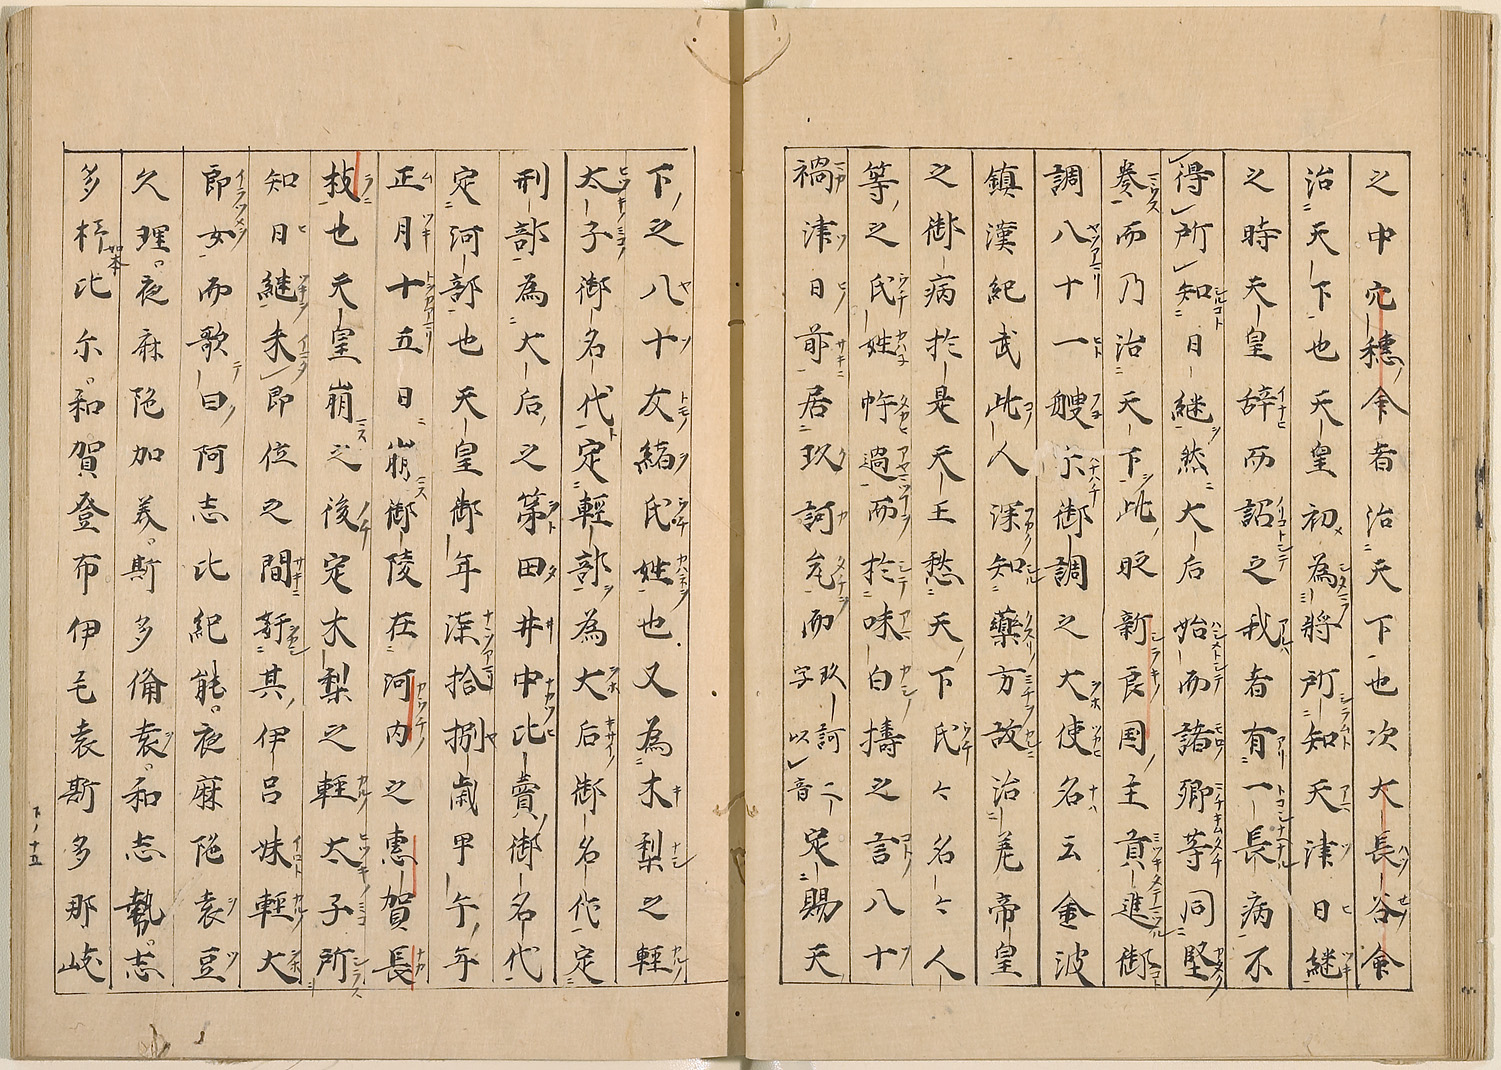 之中穴穂命者治天下也次大長谷命
治天下也天皇初為將所知天津日継
之時天皇辞而詔之我者有一長病不
得所知日継然大后始而諸卿等同堅
奏而乃治天下此時新良国主貢進御
調八十一艘尓御調之大使名云金波
鎮漢紀武此人深知藥方故治差帝皇
之御病於是天王愁天下氏々名々人
等之氏姓忤過而於味白擣之言八十
禍津日前居玖訶瓮而玖訶二字以音定賜天
下之八十友緒氏姓也又為木梨之輕
太子御名代定輕部為大后御名代定
刑部為大后之第田井中比賣御名代
定河部也天皇御年漆拾捌歳甲午年
正月十五日崩御陵在河内之惠賀長
枝也天皇崩之後定木梨之輕太子所
知日継未即位之間奸其伊呂妹輕大
郎女而歌曰阿志比紀能夜麻陁袁豆
久理夜麻陁加美斯多備袁和志勢志
多杼比尓和賀登布伊毛袁斯多那岐
下ノ十五